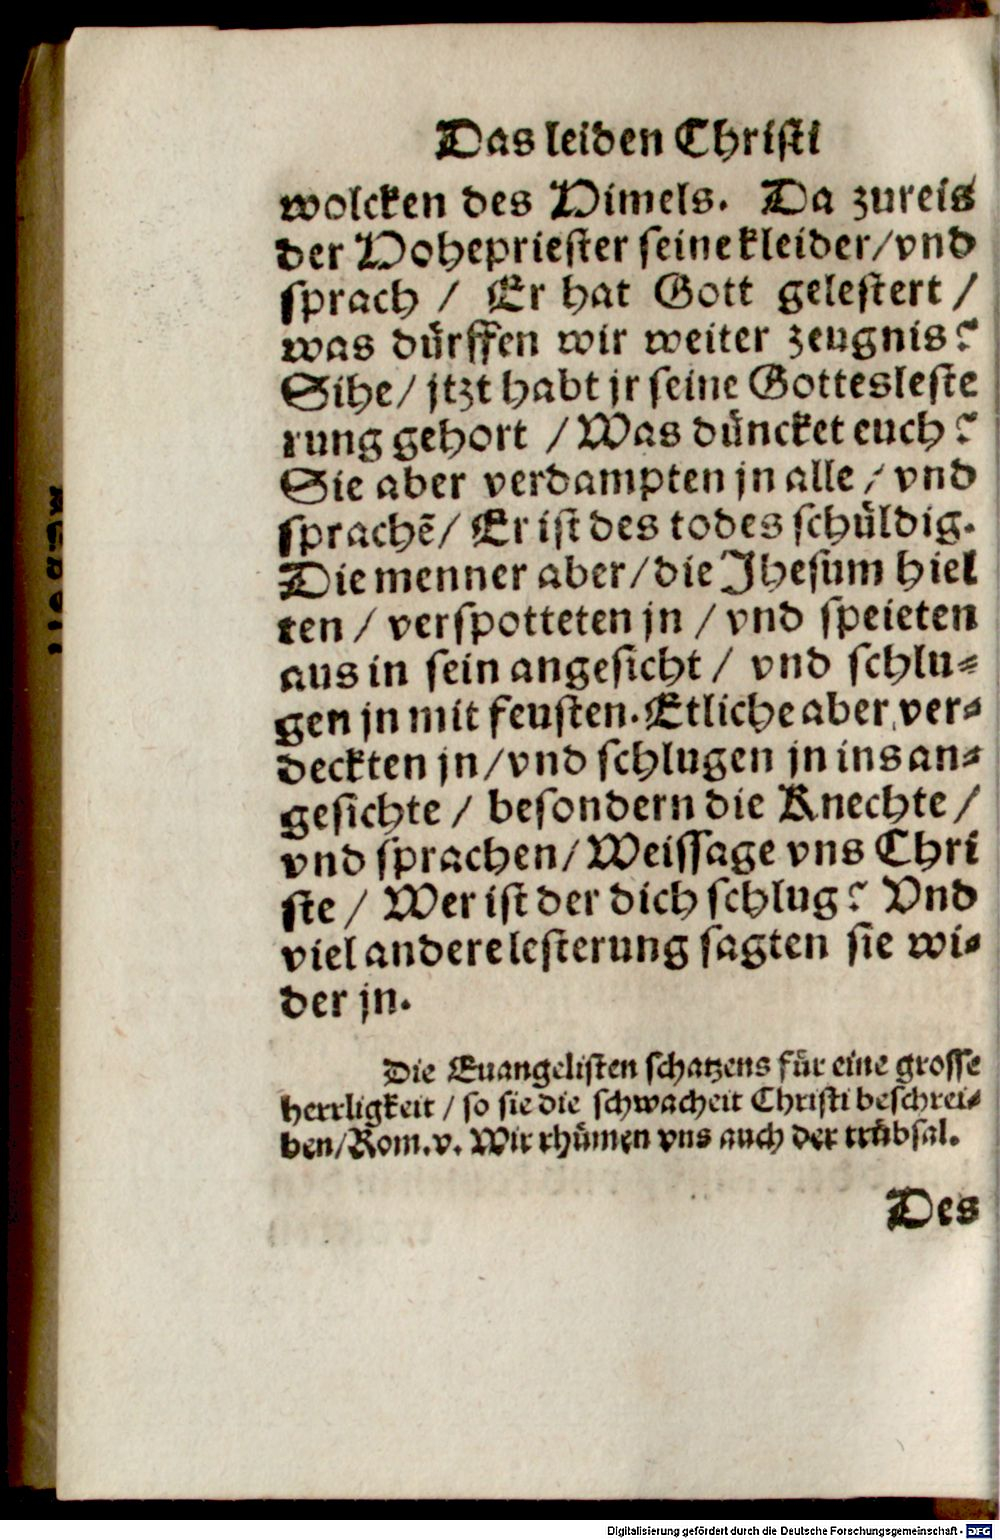 Das leiden Christi
wolcken des Himels. Da zureis
der Hohepriester seine kleider/vnd
sprach / Er hat Gott gelestert /
was dürffen wir weiter zeugnis?
Sihe/ jtzt habt jr seine Gottesleste
rung gehort / Was düncket euch?
Sie aber verdampten jn alle / vnd
sprachē/ Er ist des todes schüldig.
Die menner aber/die Jhesum hiel
ten / verspotteten jn / vnd speieten
aus in sein angesicht / vnd schlu⸗
gen jn mit feusten. Etliche aber ver⸗
deckten jn/vnd schlugen jn ins an⸗
gesichte / besondern die Knechte /
vnd sprachen/ Weissage vns Chri
ste / Wer ist der dich schlug? Vnd
viel andere lesterung sagten sie wi⸗
der jn.
Die Euangelisten schatzens für eine grosse
herrligkeit / so sie die schwacheit Christi beschrei⸗
ben/Rom.v. Wir rhümen vns auch der trübsal.
Des
Digitalisierung gefördert durch die Deutsche Forschungsgemeinschaft - DFG